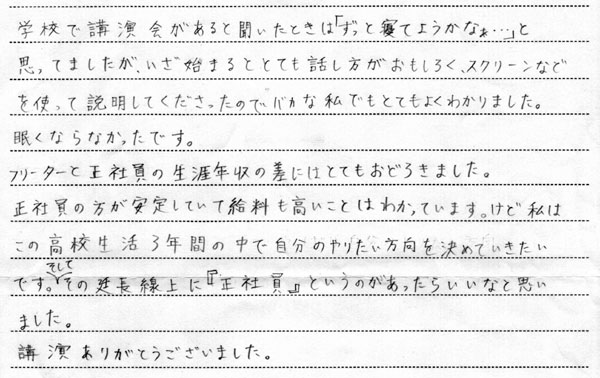 学校で講演会があると聞いたときは「ずっと寝てようかなぁ…」と
思ってましたが、いざ始まるととても話し方がおもしろく、スクリーンなど
を使って説明してくださったのでバカな私でもとてもよくわかりました。
眠くならなかったです。
フリーターと正社員の生涯年収の差にはとてもおどろきました。
正社員の方が安定していて給料も高いことはわかっています。けど私は
この高校生活3年間の中で自分のやりたい方向を決めていきたい
です。そしてその延長線上に『正社員』というのがあったらいいなと思い
ました。
講演ありがとうございました。